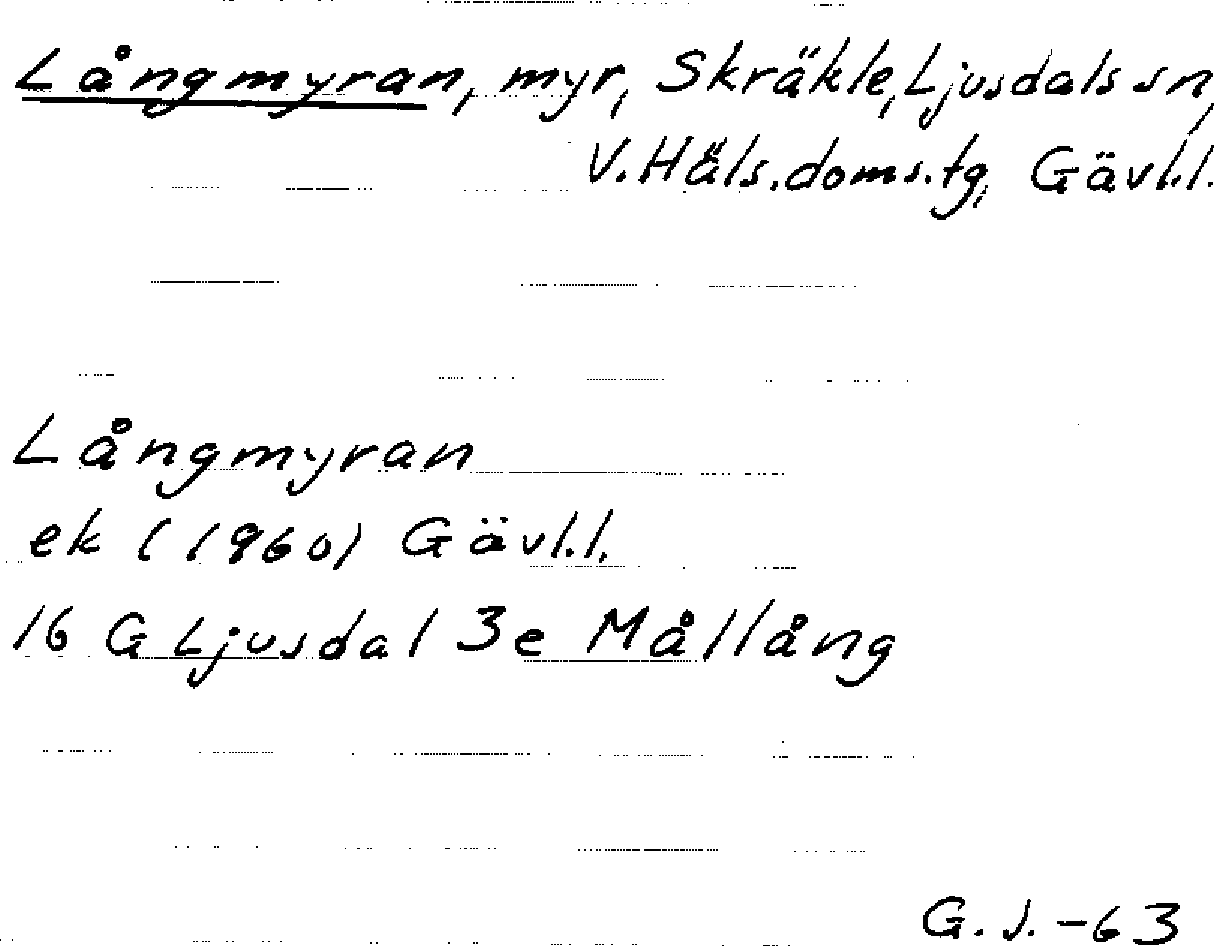 Långmyran, myr, Skräkle, Ljusdals sn,
V. Häls. doms. tg, Gävl.l.
Långmyran
ek (1960) Gävl.l.
16 G Ljusdal 3e Mållång
G.J. -63